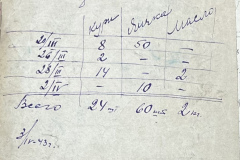 кур яичка Масло
20/III 8 50 —
26/III 2 — —
28/III 14 — 2
2/IV — 10 —
Всего 24 шт 60 шт 2 кг.
3/IV-43 г.